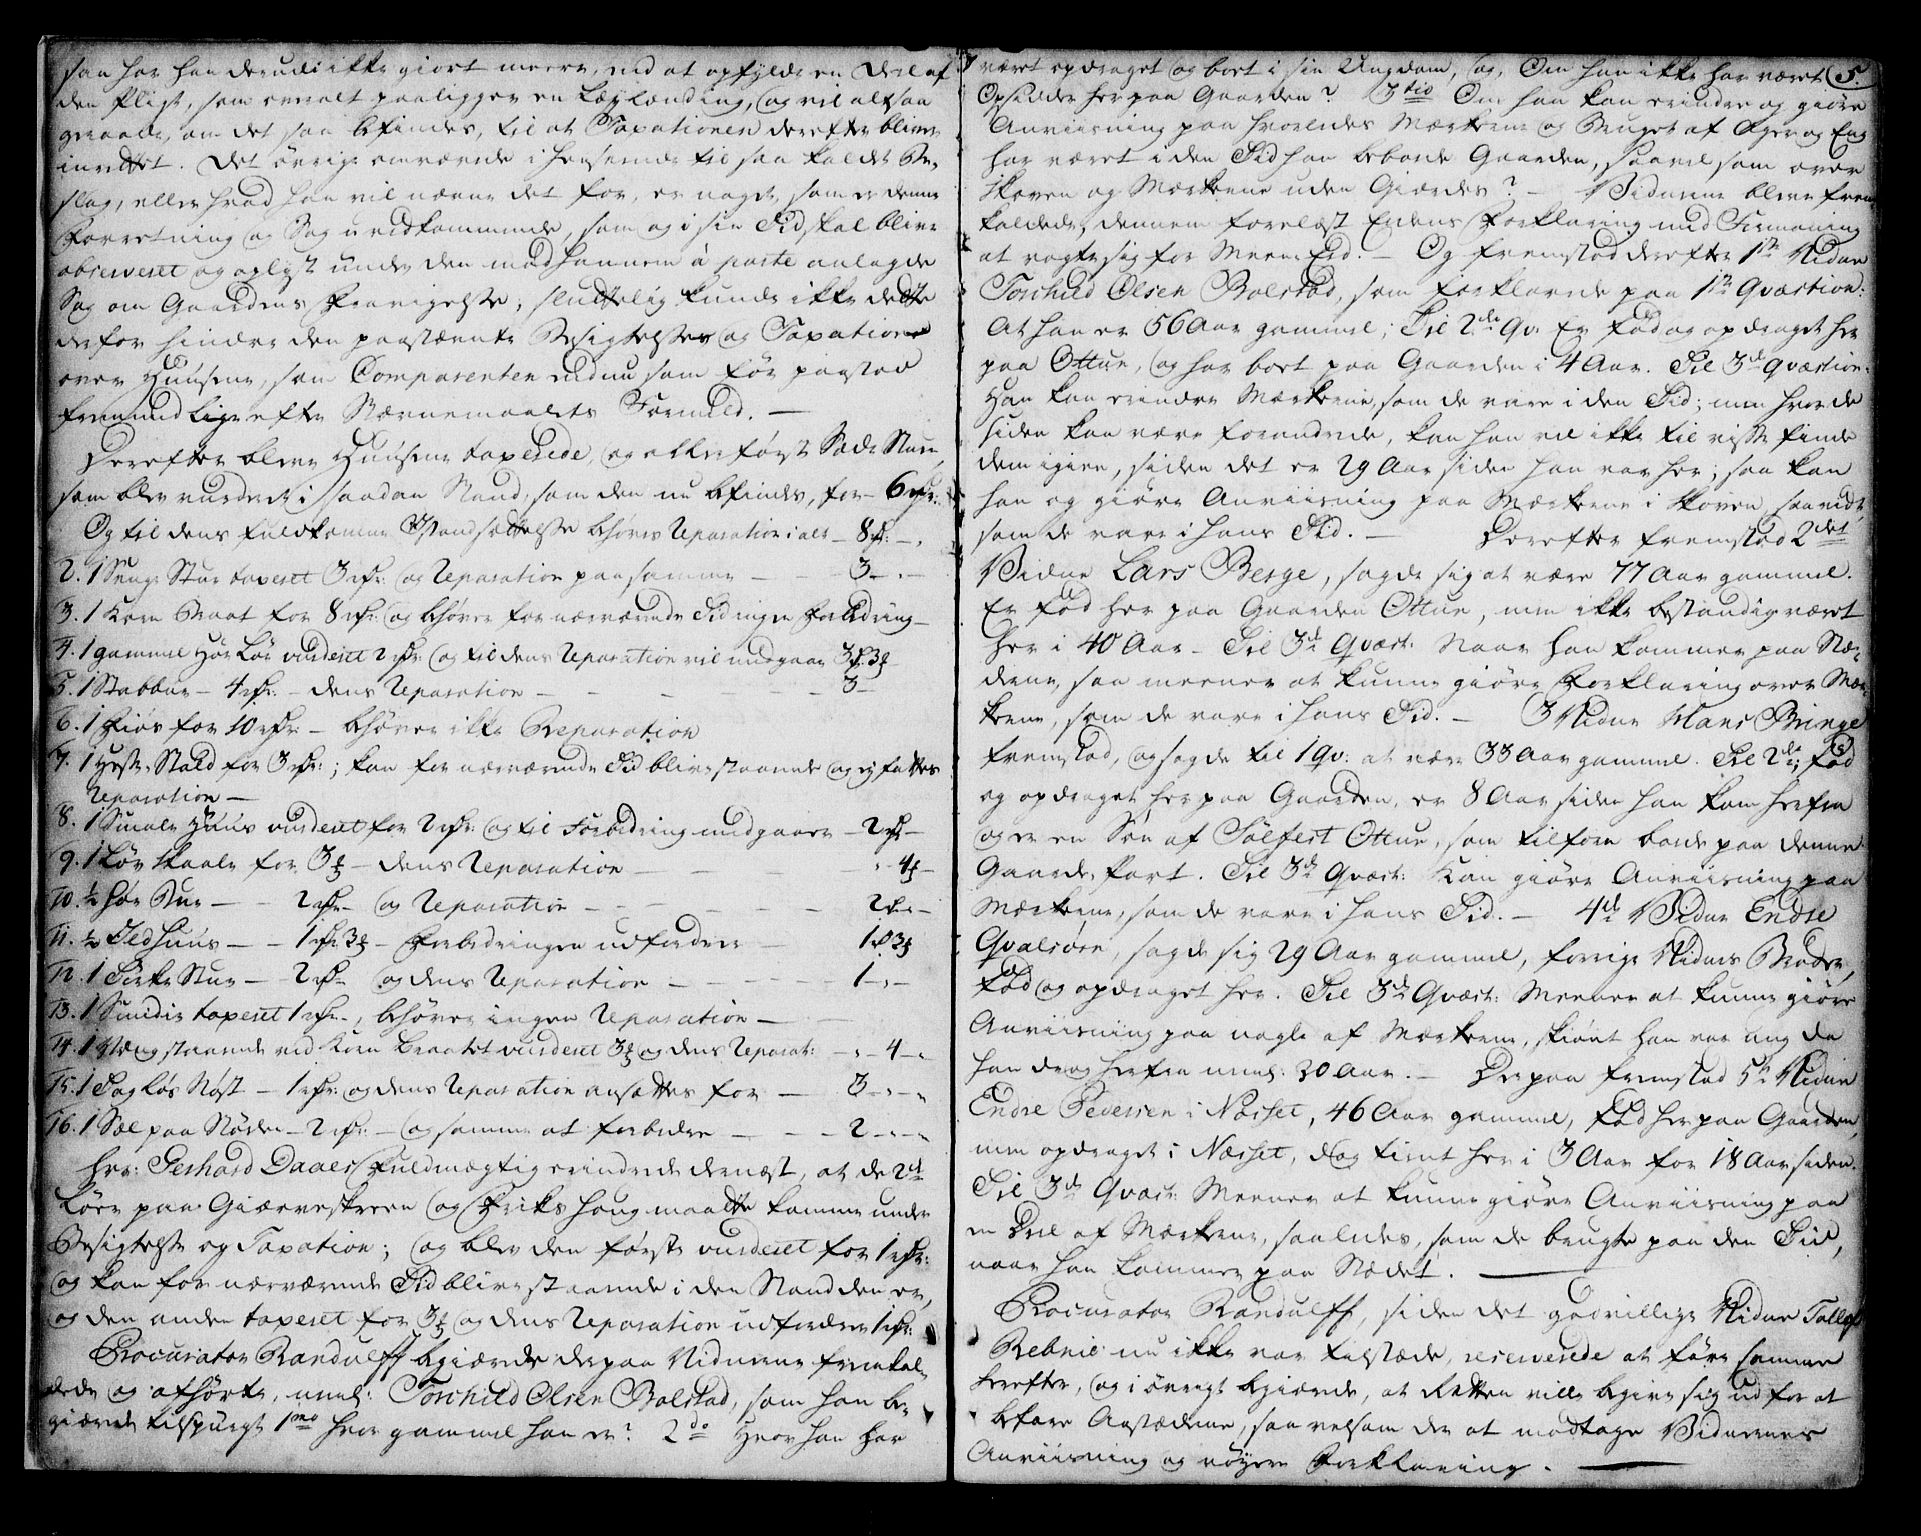 saa har han derudi ikke giort meere, end at opfylde en Deel af
den Pligt, som overalt paaligger en Leylænding, og vil altsaa
geraade, om det saa befindes, til at Taxationen derefter bliver
inrettet. Det øvrige omrørende i henseende til saa kaldet Be-
slag, eller hvad han vil nævne det for, er noget, som er denne
Forretning og Sag uvedkommende, som og i sin Tid skal blive
observeret og oplyst under den mod hannem à parte anlagde
Sag om Gaardens Fravigelse; sluttelig kunde ikke dette
derfor hindre den paastævnte Besigtelse og Taxation
over Huusene, som Comparenten endnu som før paastod
fremmed lige efter Stævnemaalets Formeld. —
Derefter bleve Huusene taxerede, og aller først Sæde Stuen,
som blev vurderet i saadan Stand, som den nu befindes, for 6 rdr:
Og til dens fuldkomne Istandsættelse behøves Reparation i alt — 8 rd: —
2. 1 Senge Stue taxeret 3 rdr: og Reparation paa samme — — 3 — . —
3. 1 Korn Braat for 8 rdr: og behøver for nærværende Tid ingen Forbedring —
4. 1 gammel Høe Løe vurderet 2 rdr: og til dens Reparation vil medgaae 3 rd. 3 ß
5. 1 Stabbur — 4 rdr: — dens Reparation — — — 3 —
6. 1 Fiøs for 10 rdr: — behøver ikke Reparation
7. 1 Heste Stald for 3 rdr:; kan for nærværende Tid blive staaende og ej fattes
Reparation —
8. 1 Smale Huus vurderet for 2 rdr: og til Forbedring medgaaer — 2 rdr —
9. 1 Løv Skaale for 3 ß — dens Reparation — — — „ 4 ß —
10. ½ Høe Bue — — 2 rdr — og Reparation — — — 2 rdr —
11. ½ Ildhuus — — 1 rdr 3 ß — Forbedringen udfordrer — 1 rd 3 ß
12. 1 Birke Stue — 2 rdr — og dens Reparation — — — 1 — „ —
13. 1 Smidie taxeret 1 rdr —, behøver ingen Reparation —
14. 1 Væng staaende ved Korn Braatet vurderet 3 ß og dens Reparat: — „ — 4 — „
15. 1 Tagløs Nøst — 1 rdr: og dens Reparation ansættes for — 3 — „ —
16. 1 Sæl paa Støden — 2 rdr: — og samme at forbedre — — 2 — „ —
Hrr: Gerhard Daaes Fuldmægtig erindrede dernæst, at de 2de
Løer paa Giærveskreen og Friks houg maatte komme under
Besigtelse og Taxation; og blev den første vurderet for 1 rdr:
og kan for nærværende Tid blive staaende i den Stand den er,
og den anden taxeret for 3 ß og dens Reparation udfordrer 1 rdr:
Procurator Randulff begiærede derpaa Vidnerne fremkal-
dede og afhørte, neml: Torchild Olsen Bolstad, som han be-
giærede tilspurgt 1mo hvor gammel han er? 2do Hvor han har
været opdraget og boet i sin Ungdom, og, Om han ikke har været 5.
Opsidder her paa Gaarden? 3tio Om han kan erindre og giøre
Anviisning paa hvorledes Mærkerne og Bruget af Ager og Eng
har været i den Tid han beboede Gaarden, saavel som over
Skoven og Mærkerne uden Giærdes? — Vidnerne bleve frem
kaldede, dennem forelæst Edens Forklaring med Formaning
at vogte sig for Meen-Eed. — Og fremstod derefter 1ste Vidne
Torchild Olsen Bolstad, som forklarede paa 1ste Qvæstion:
At han er 56 Aar gammel; Til 2den Qv: Er fød og opdraget her
paa Ottum, og har boet paa Gaarden i 4 Aar. Til 3de Qvæstion:
Han kan erindre Mærkerne, som de vare i den Tid; men hvor de
siden kan være forandrede, kan han vel ikke til visse finde
dem igien, siden det er 29 Aar siden han var her; saa kan
han og giøre Anviisning paa Mærkerne i Skoven, saavidt,
som de vare i hans Tid. — Derefter fremstod 2det
Vidne Lars Berge, sagde sig at være 77 Aar gammel.
Er fød her paa Gaarden Ottum, men ikke bestandig været
her i 40 Aar — Til 3de Qvæst: Naar han kommer paa Stæ-
derne, saa meener at kunne giøre Forklaring over Mær-
kerne, som de vare i hans Tid. — 3 Vidne Hans Bringe
fremstod, og sagde til 1 Qv: at være 33 Aar gammel. Til 2de; Fød
og opdraget her paa Gaarden, er 8 Aar siden han kom herfra
og er en Søn af Sølfest Ottum, som tilforn boede paa denne
Gaarde Part. Til 3de Qvæst: Kan giøre Anviisning paa
Mærkerne, som de vare i hans Tid. — 4de Vidne Endre
Qvalsøren, sagde sig 29 Aar gammel, forrige Vidnes Broder,
fød og opdraget her. Til 3de Qvæst: Meener at kunne giøre
Anviisning paa nogle af Mærkerne, skiønt han var ung da
han drog herfra neml: 20 Aar. — Derpaa fremstod 5te Vidne
Endre Pedersen i Næsset, 46 Aar gammel, fød her paa Gaarden,
men opdraget i Næsset, dog tient her i 3 Aar for 18 Aar siden.
Til 3de Qvæst: Meener at kunne giøre Anviisning paa
en Deel af Mærkerne, saaledes, som de brugte paa den Tid,
naar han kommer paa Stædet. —
Procurator Randulff, siden det godvillige Vidne Tollef
Rebnie nu ikke var tilstæde, reserverede at føre samme
herefter, og i øvrigt begiærede, at Retten ville begive sig ud for at
befare Aastæderne, saavelsom der at modtage Vidnernes
Anviisning og nøyere Forklaring. —